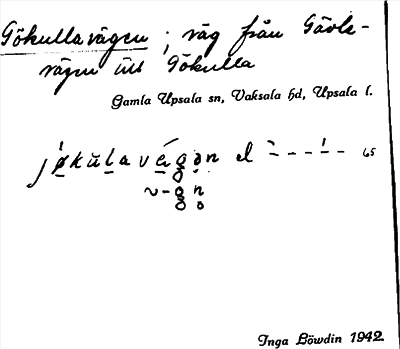 Gökullavägen ; väg från Gävle-
vägen till Gökulla
Gamla Upsala sn, Vaksala hd, Upsala l.
el
65
Inga Löwdin 1942.